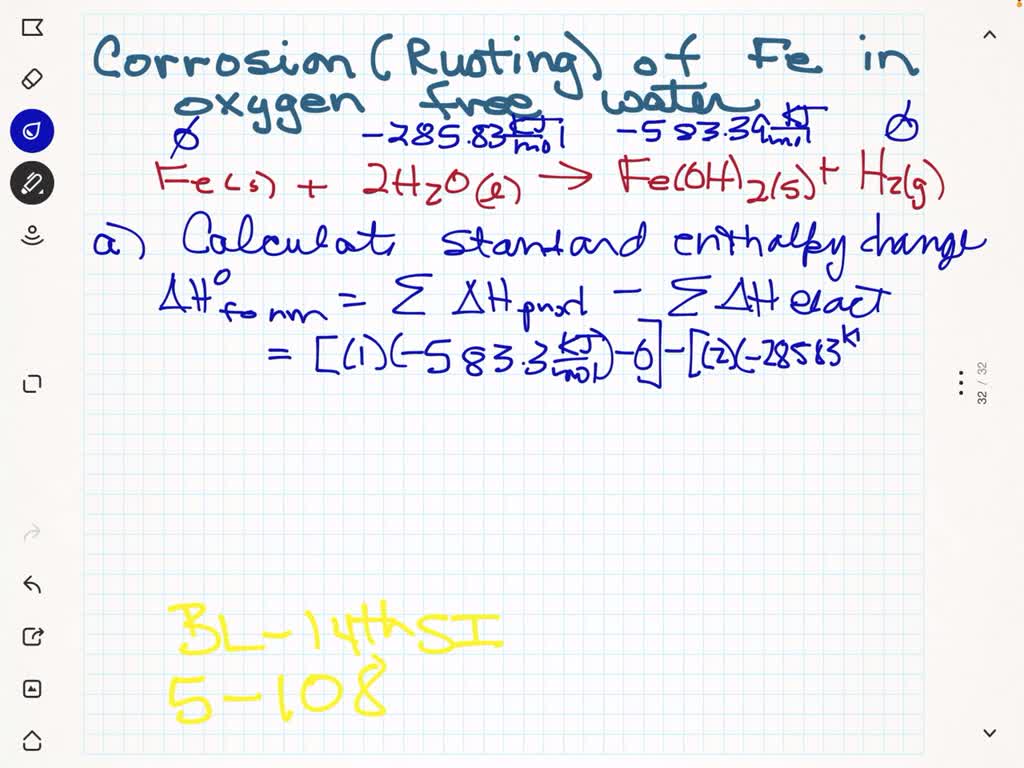 Corrosion (Rusting) of Fe in
oxygen free water
∅ -285.83 KJ/mol -583.39 KJ/mol ∅
Fe(s) + 2H₂O(ℓ) → Fe(OH)₂(s) + H₂(g)
a) Calculate standard enthalpy change
ΔH°form = Σ ΔHprod - Σ ΔH react
= [(1)(-583.3 KJ/mol) - 0] - [(2)(-28583 KJ
32 / 32
BL-14th SI
5-108